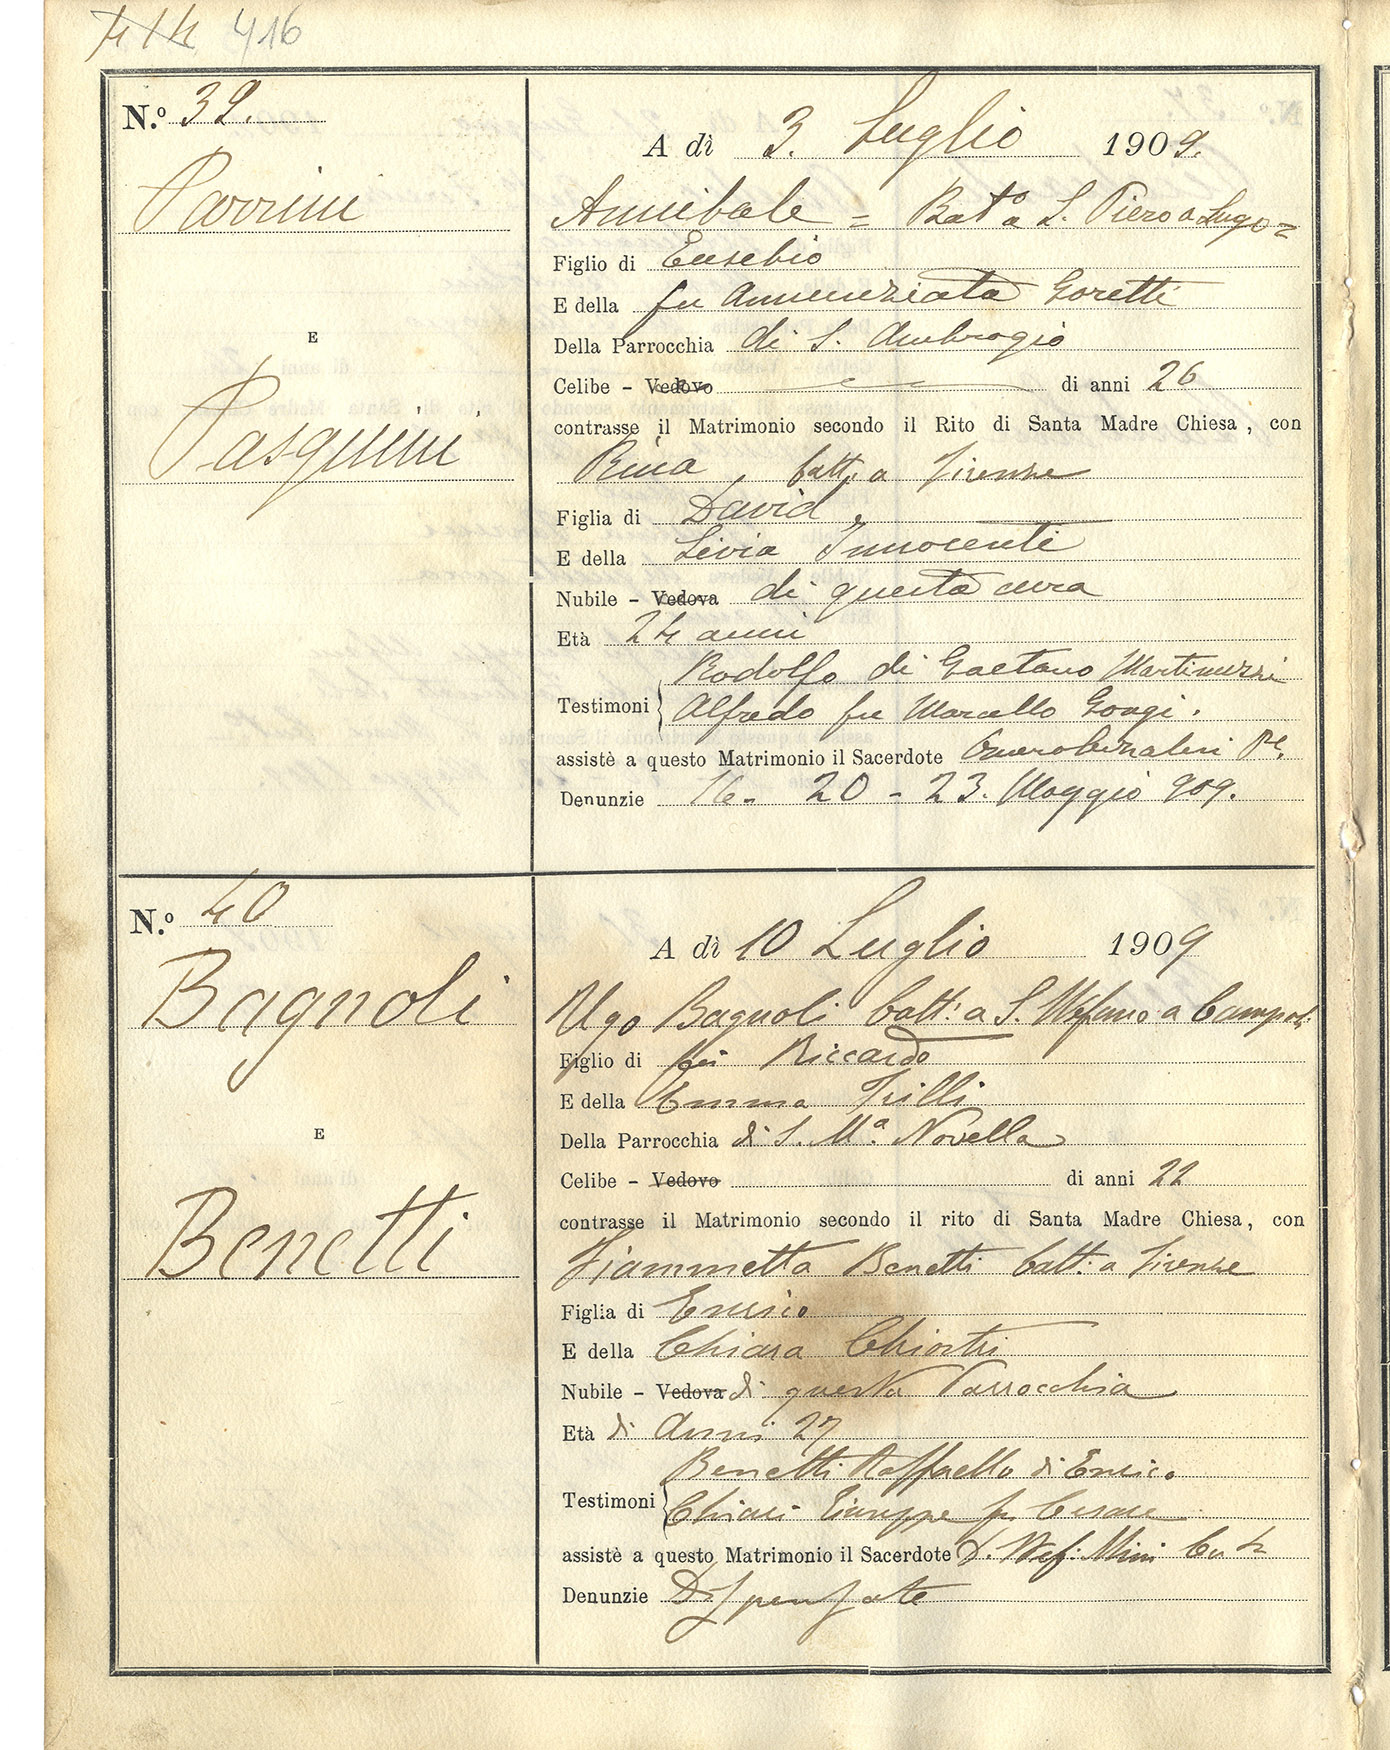 416
N.º 39.
Parrini
E
Pasquini
A dì 3. Luglio 1909.
Annibale = Batº a S. Piero a Lugo =
Figlio di Eusebio
E della fu Annunziata Goretti
Della Parrocchia di S. Ambrogio
Celibe - Vedovo di anni 26
contrasse il Matrimonio secondo il Rito di Santa Madre Chiesa, con
Rina, batt. a Firenze
Figlia di David
E della Livia Innocenti
Nubile - Vedova di questa cura
Età 24 anni
Rodolfo di Gaetano Martinuzzi
Testimoni Alfredo fu Marcello Gongi.
assistè a questo Matrimonio il Sacerdote
Denunzie 16 - 20 - 23. Maggio 909.
N.º 40
Bagnoli
E
Benetti
A dì 10 Luglio 1909
Ugo Bagnoli batt: a S. Stefano a Campoli
Figlio di fu Riccardo
E della Emma Trilli
Della Parrocchia di S. Mª. Novella
Celibe - Vedovo di anni 22
contrasse il Matrimonio secondo il rito di Santa Madre Chiesa, con
Fiammetta Benetti batt: a Firenze
Figlia di Enrico
E della Chiara Chiostri
Nubile - Vedova di questa Parrocchia
Età di Anni 27
Benetti Raffaello di Enrico
Testimoni Chiari Giuseppe fu Cesare
assistè a questo Matrimonio il Sacerdote D. Stef: Mini
Denunzie Dispensate